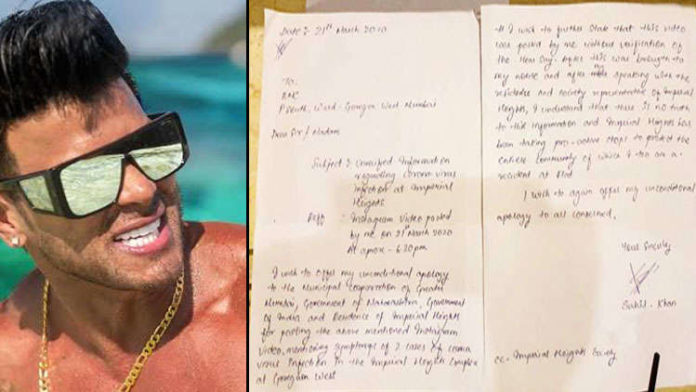 Date :- 21st March 2020
To:
BMC
P South, Ward - Goregaon West Mumbai
Dear Sir / Madam
Subject : Unverified Information
regarding corona virus
Infection at Imperial
Heights
: Instagram video posted
by me on 21st March 2020
At aprox - 6:30pm
I wish to offer my unconditional apology
to the Municipal Corporation of Greater
Mumbai, Government of Maharashtra, Government
of India and Residence of Imperial Heights
for posting the above mentioned Instagram
video, mentioning symptoms of 2 cases of corona
virus Infection in the Imperial Heights Complex
at Goregaon West
I wish to further state that this video
was posted by me without verification of
the Hear say. After this was brought to
my notice and after speaking with the
residence and society representative of Imperial
Heights, I understand that there is no truth
to this information and Imperial Heights has
been taking pro-active steps to protect the
entire community of which I too am a
resident at
I wish to again offer my unconditional
apology to all concerned.
Your Sincerly
Sahil - Khan
cc - Imperial Heights Society